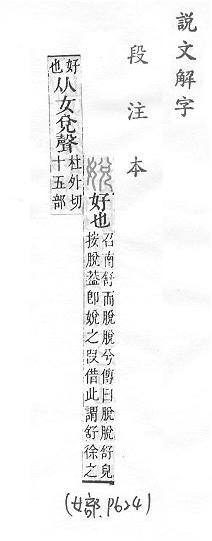 說文解字
段注本
娧好也召南舒而脫脫兮傳曰脫脫舒皃
按脫葢卽娧之叚借此謂舒徐之
好也从女兌聲杜外切
十五部
(女部 P624)